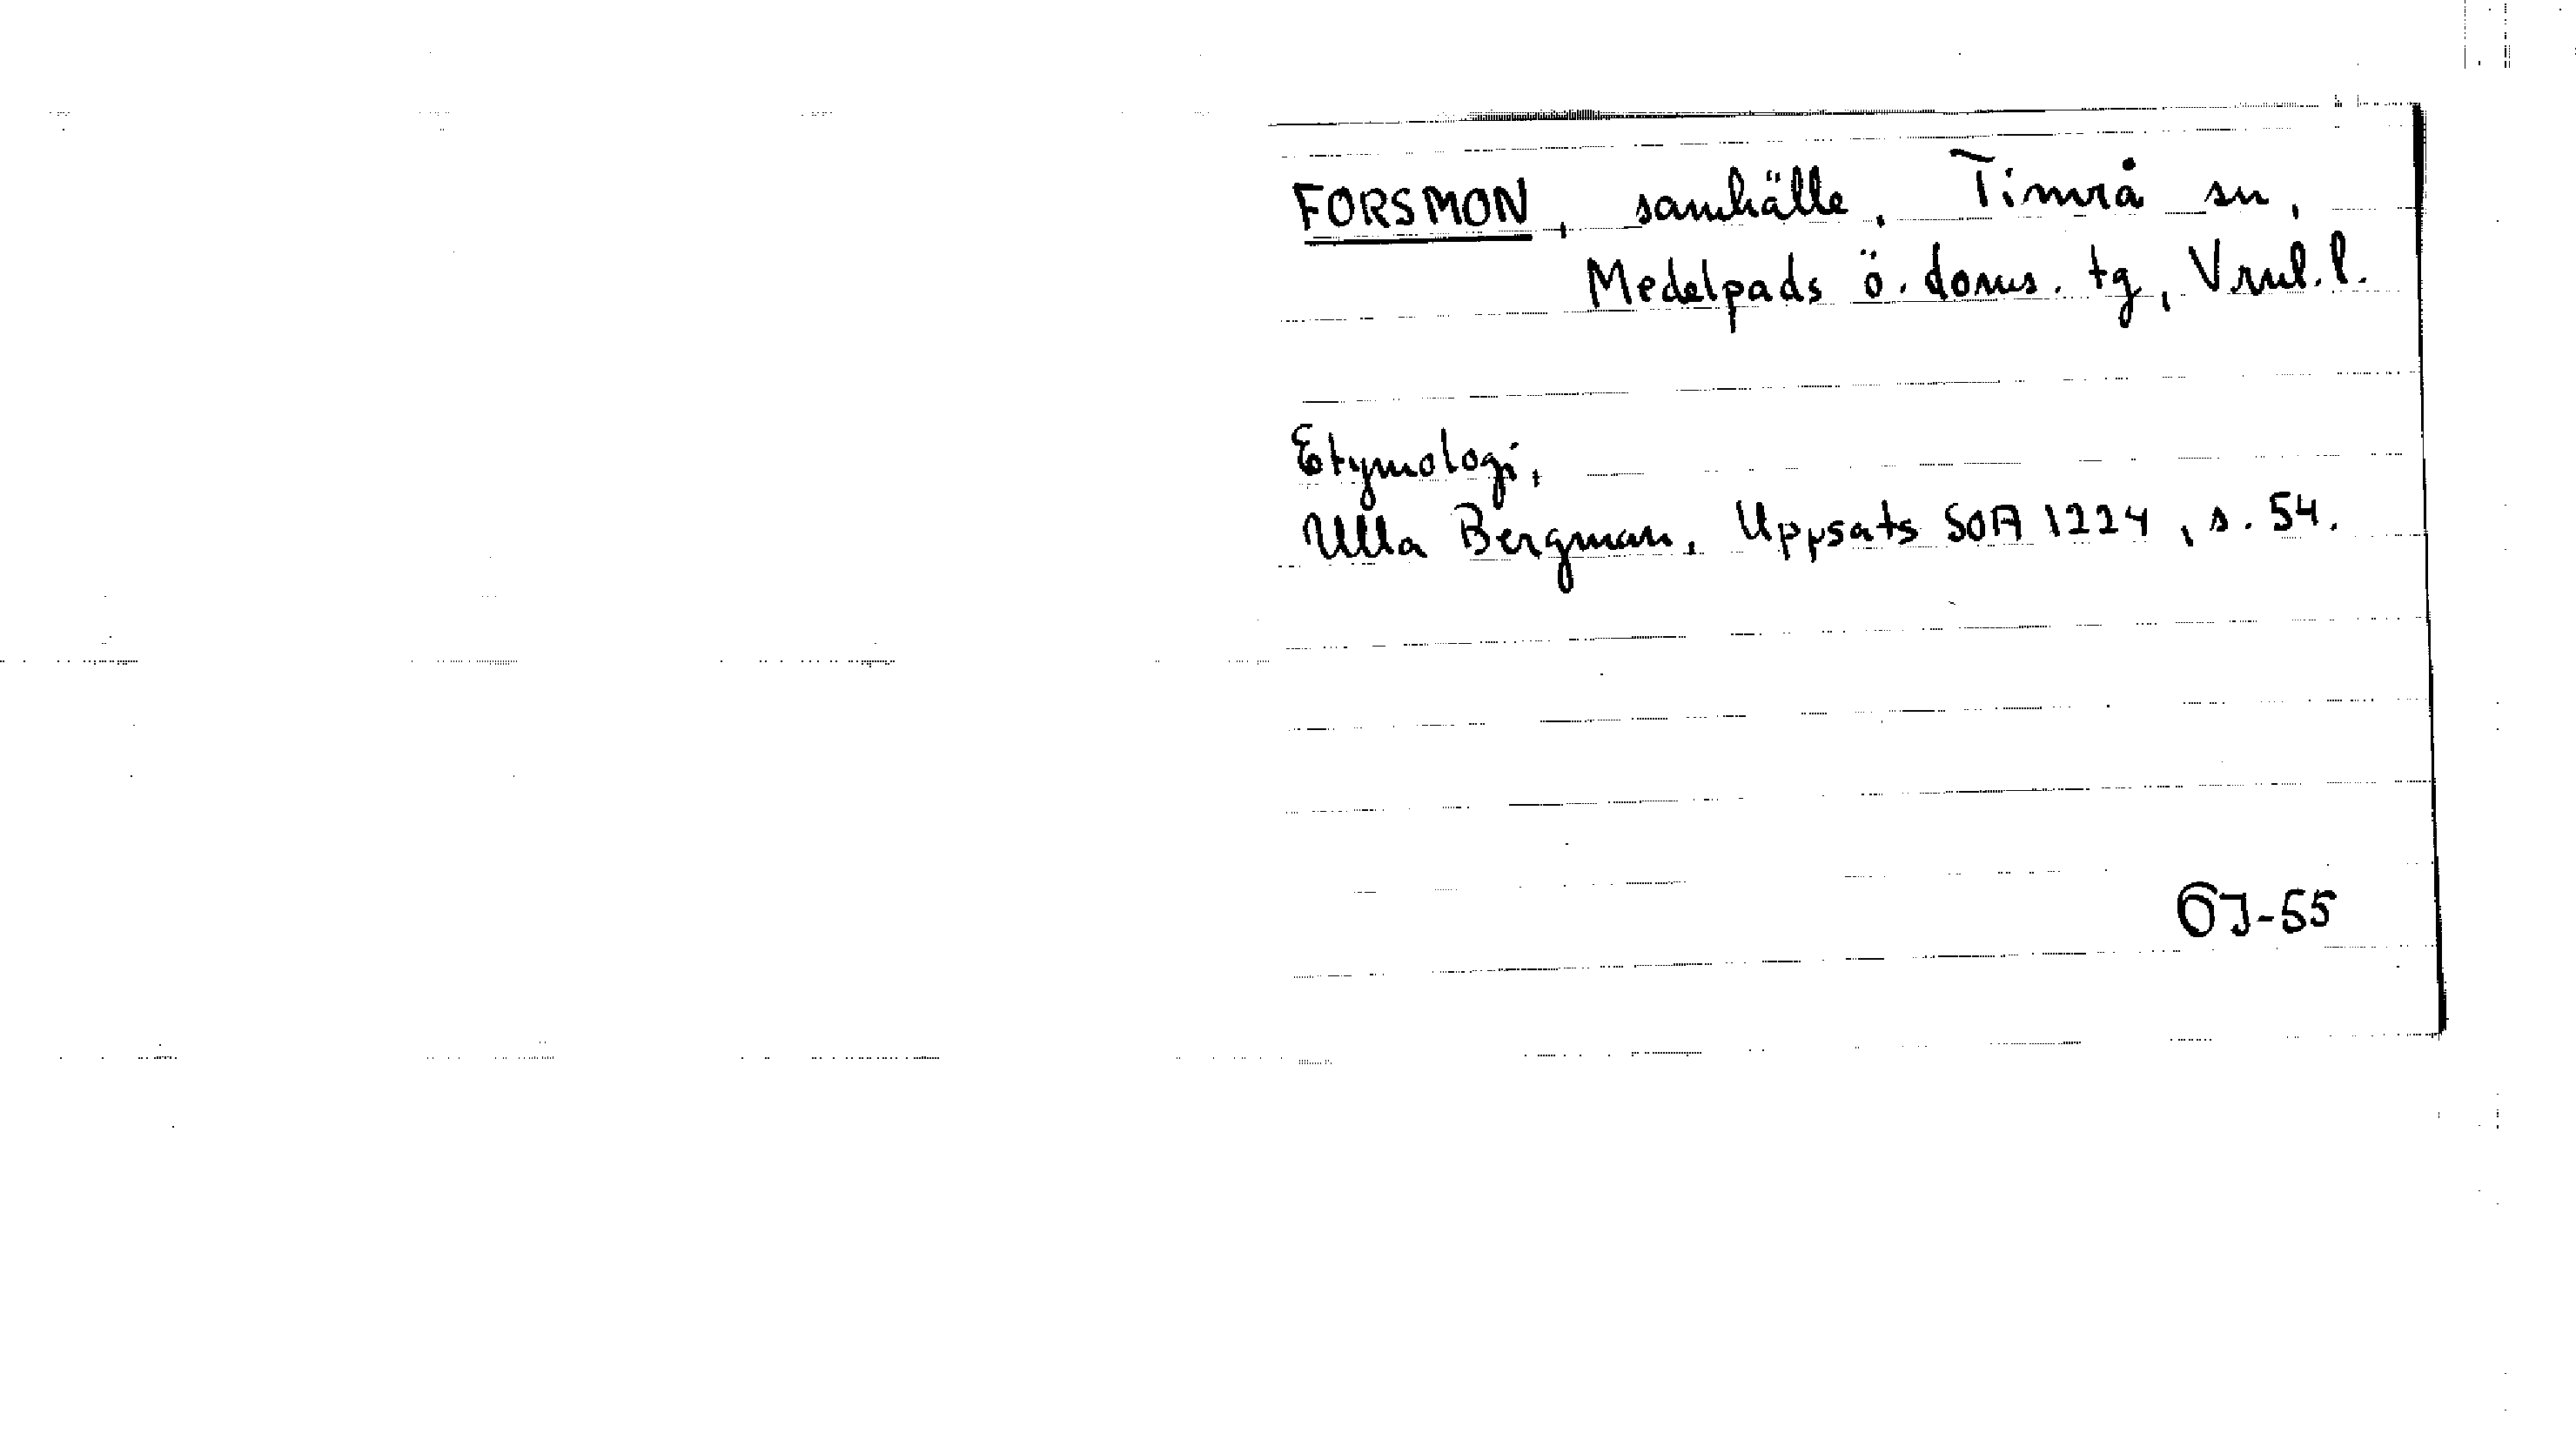 FORSMON, samhälle, Timrå sn,
Medelpads ö. doms. tg, Vnl. l.
Etymologi,
Ulla Bergman, Uppsats SOA 1224, s. 54.
ÖJ-55